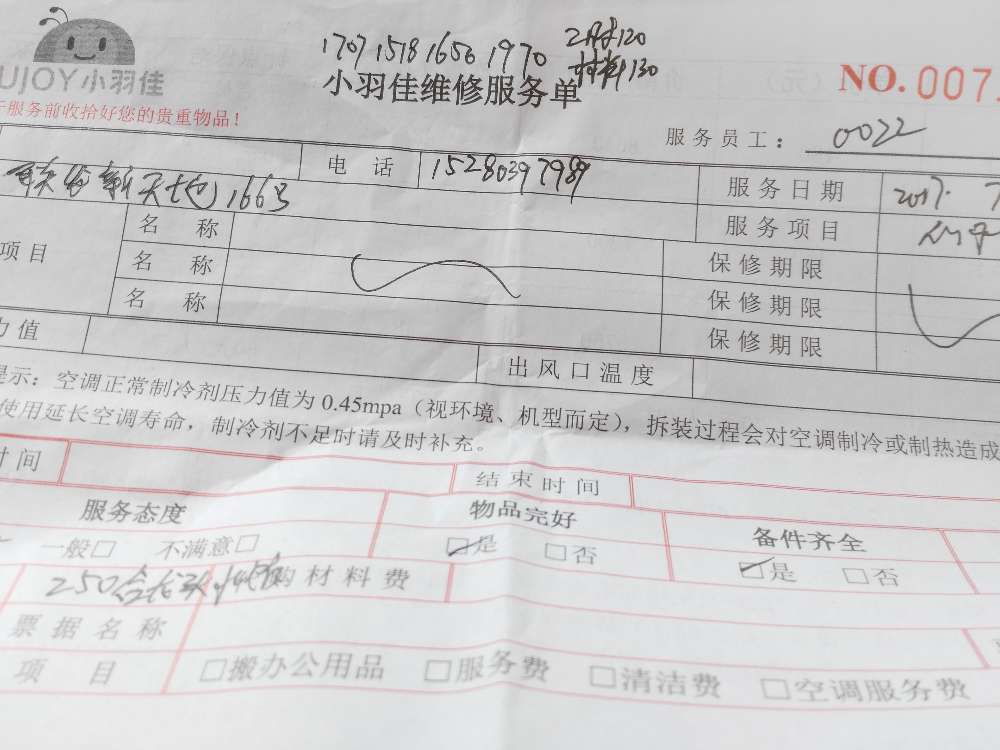 UJOY小羽佳
1707151816561970 工时120
材料130
小羽佳维修服务单
NO. 007
服务前收拾好您的贵重物品！
服务员工： 0022
新天地166号 电话 15280397989 服务日期 2017.7
服务项目
项目 名称 保修期限
名称 保修期限
名称 保修期限
力值 出风口温度
提示：空调正常制冷剂压力值为 0.45mpa（视环境、机型而定），拆装过程会对空调制冷或制热造成
使用延长空调寿命，制冷剂不足时请及时补充。
时间 结束时间
服务态度 物品完好 备件齐全
一般□ 不满意□ ☑是 □否 ☑是 □否
250 购材料费
票据名称
项目 □搬办公用品 □服务费 □清洁费 □空调服务费